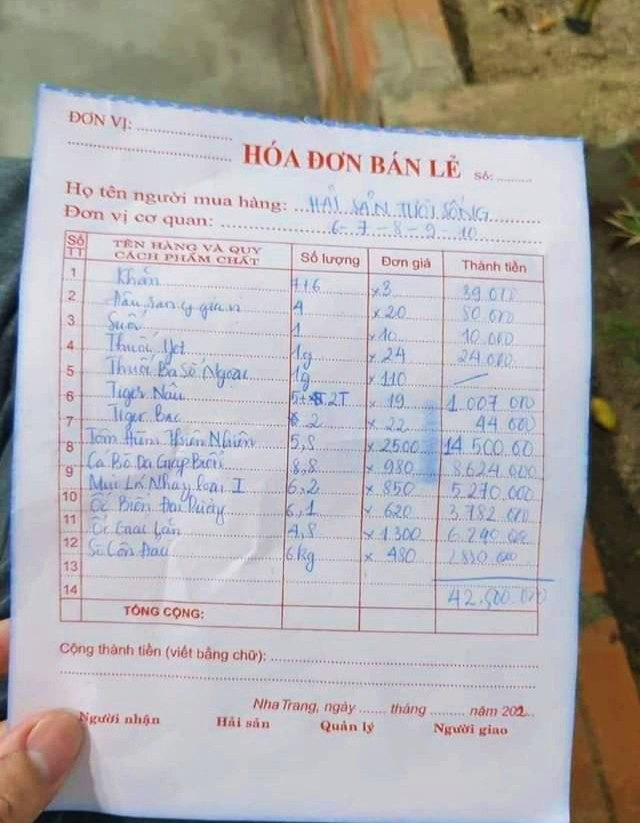 ĐƠN VỊ: ........................
........................................
HÓA ĐƠN BÁN LẺ Số: .........
Họ tên người mua hàng: HẢI SẢN TƯƠI SỐNG
Đơn vị cơ quan: 6-7-8-9-10
Số TT TÊN HÀNG VÀ QUY CÁCH PHẨM CHẤT Số lượng Đơn giá Thành tiền
1 Khăn x3 39.000
2 4 x20 80.000
3 Suối 1 x10 10.000
4 Thuốc 1g x24 24.000
5 Thuốc Ba Số Ngoại 1g x110
6 Tiger Nâu 2T x 19 1.007 000
Tiger Bạc 2 x 22 44.000
7 Tôm Hùm Thiên Nhiên 5,8 x 2500 14 500.00
8 Cá Bò Da Giáp Biển 8,8 x 980 8.624.000
9 Mực Lá Nháy loại I 6,2 x 850 5.270.000
10 Ốc Biển 6,1 x 620 3.782.000
11 Ốc 4,8 x 1300 6.290 000
12 Sò Côn Đảo 6kg x 480 2880 000
13
14 42.500.000
TỔNG CỘNG:
Cộng thành tiền (viết bằng chữ): ........................................
........................................
Nha Trang, ngày ....... tháng ......... năm 202...
Người nhận Hải sản Quản lý Người giao